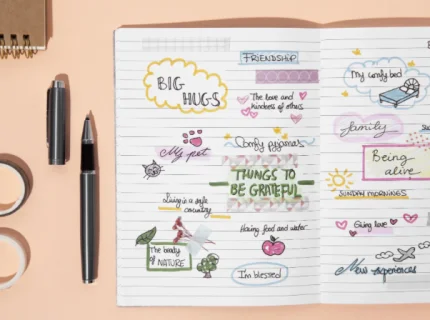 BIG
HUGS
My pet
Living in a safe
country
The beauty
of NATURE
FRIENDSHIP
The love and
kindness of others
Comfy pyjamas
THINGS TO
BE GRATEFUL
FOR
Having food and water
I'm blessed
My comfy bed
family
Being
alive
SUNDAY MORNINGS
Giving love
New experiences